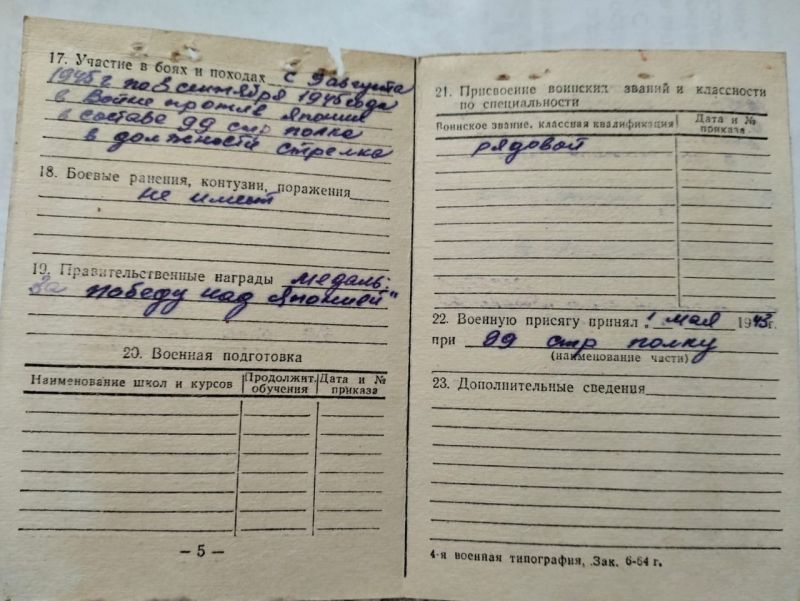 17. Участие в боях и походах с 9 августа
1945 г по 3 сентября 1945 года
в войне против Японии
в составе 99 стр полка
в должности стрелка
18. Боевые ранения, контузии, поражения
не имеет
19. Правительственные награды медаль:
"За победу над Японией"
20. Военная подготовка
Наименование школ и курсов
Продолжит. обучения
Дата и № приказа
— 5 —
21. Присвоение воинских званий и классности
по специальности
Воинское звание, классная квалификация
Дата и № приказа
рядовой
22. Военную присягу принял 1 мая 1943 г.
при 99 стр полку
(наименование части)
23. Дополнительные сведения
4-я военная типография, Зак. 6-64 г.